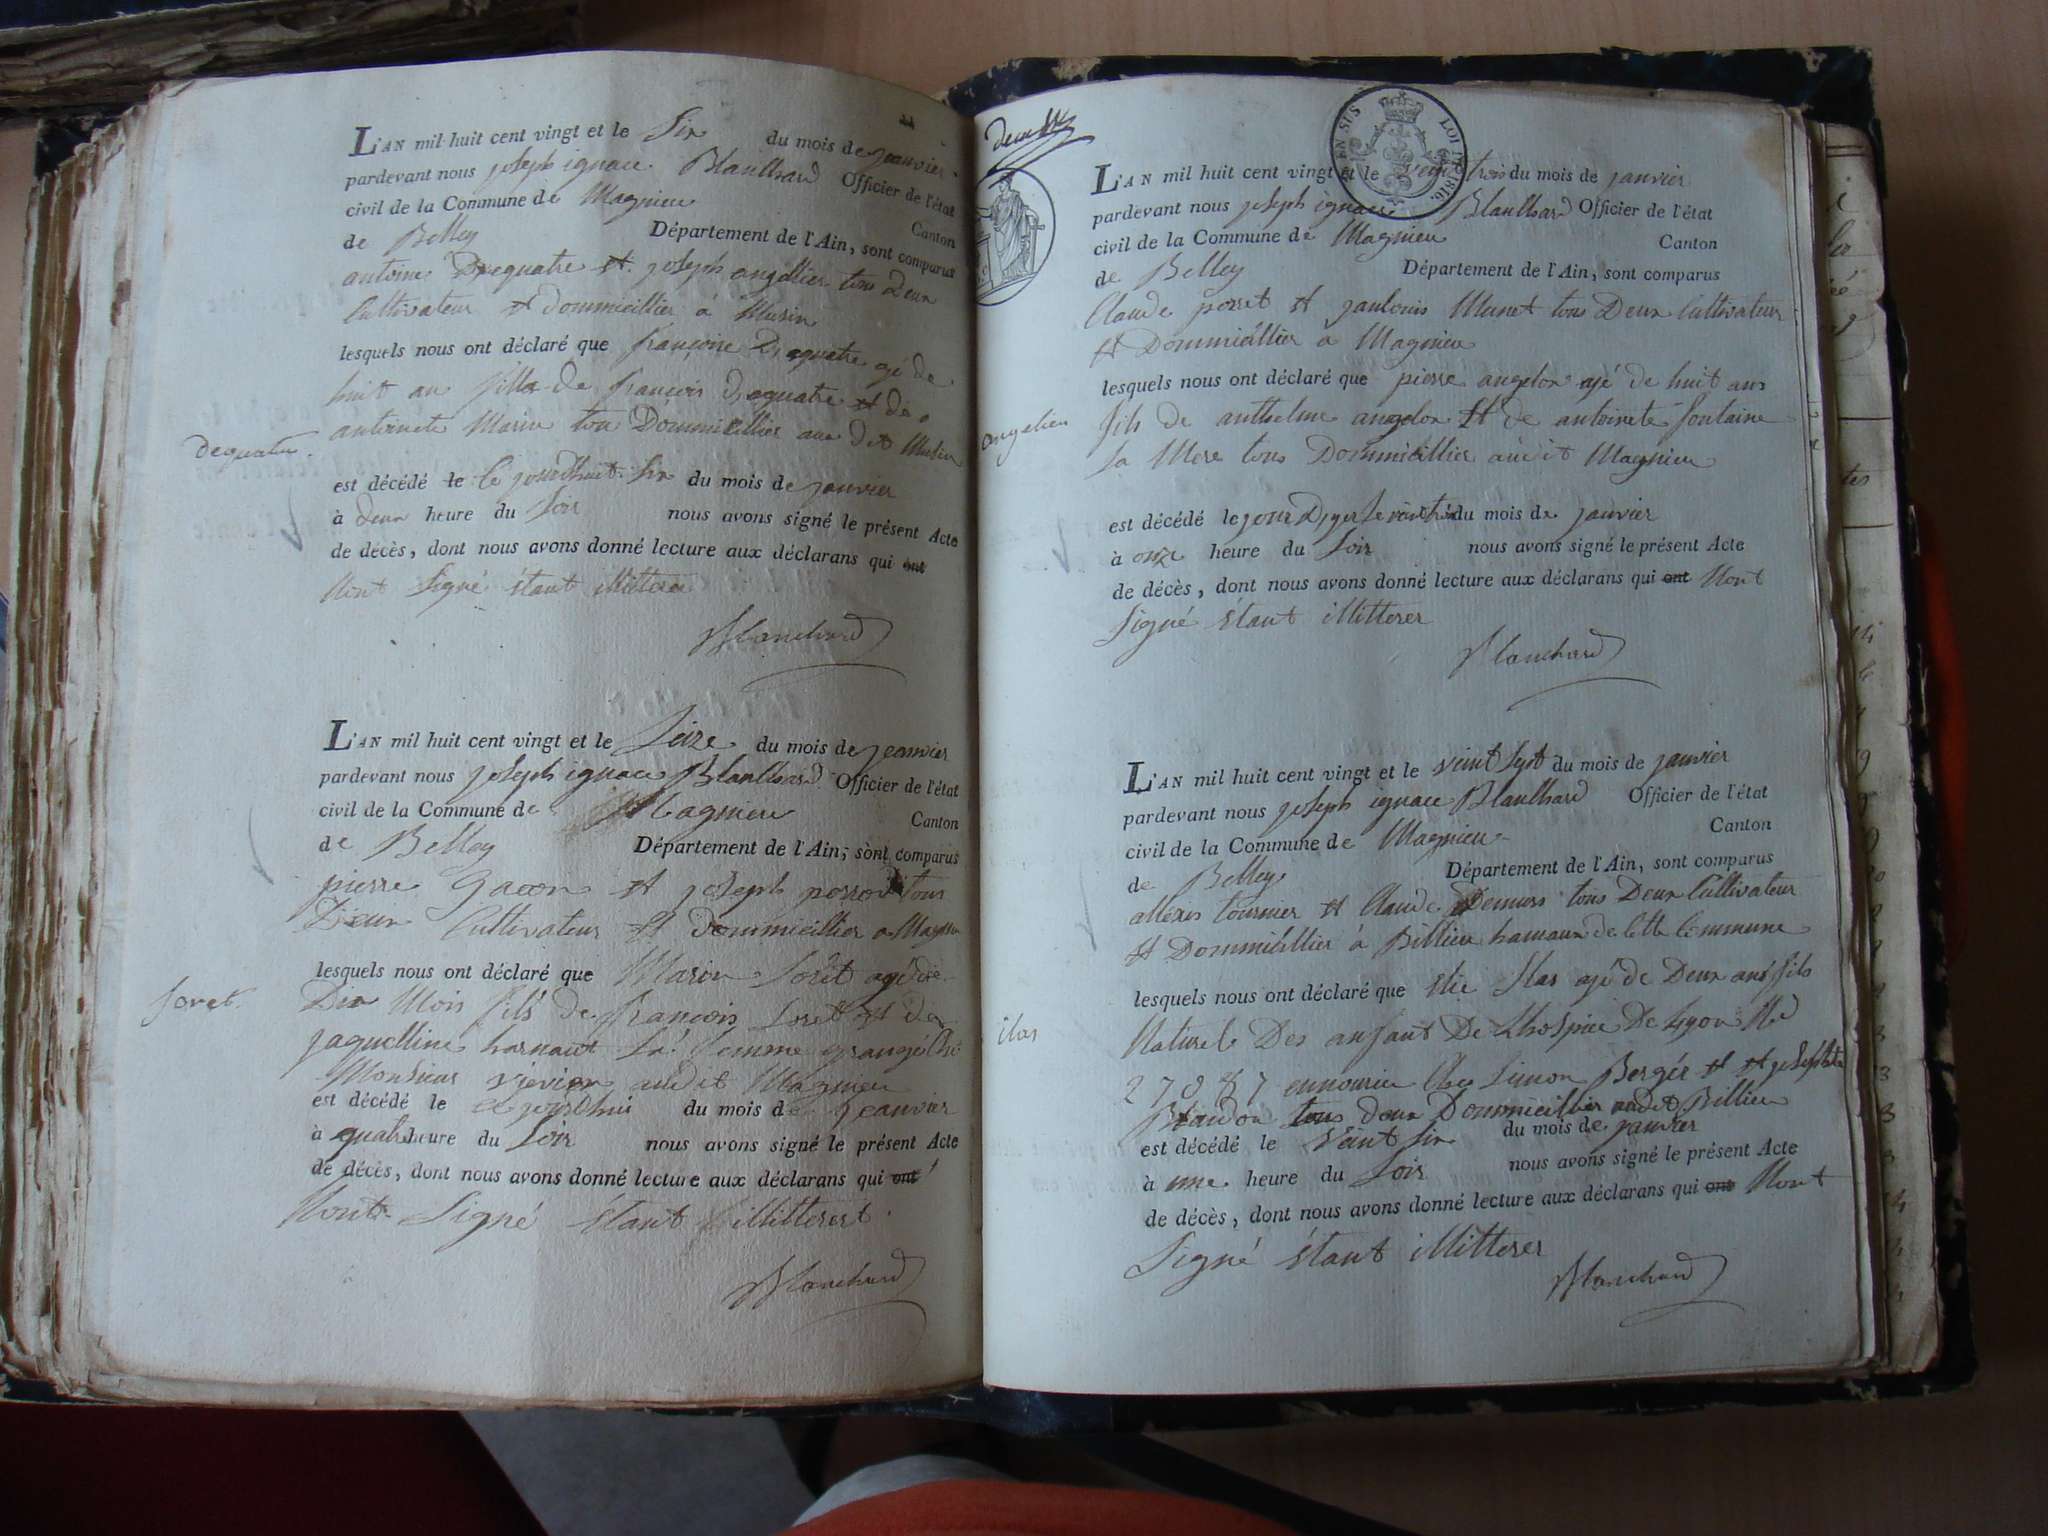 L'AN mil huit cent vingt et le Six du mois de Janvier
pardevant nous joseph ignace Blanlhard Officier de l'état
civil de la Commune de Magnieu Canton
de Belley Département de l'Ain, sont comparus
antoine Dequatre et joseph angellier tous deux
Cultivateur et Dommicillier à Musin
lesquels nous ont déclaré que françoise Dequatre agé de
huit an fille de françois Dequatre et de
antoinete Marin tou Dommicillier au dit Musin
dequatre.
est décédé le ce jourdhuit Six du mois de janvier
à deux heure du Soir nous avons signé le présent Acte
de décès, dont nous avons donné lecture aux déclarans qui ont
Nont Signé étant illitterer
Blanchard
L'AN mil huit cent vingt et le Seize du mois de jeanvier
pardevant nous joseph ignace Blanlhard Officier de l'état
civil de la Commune de Magnieu Canton
de Belley Département de l'Ain, sont comparus
pierre gacon et joseph porrod tous
Deux Cultivateur et Dommicillier a Magnieu
lesquels nous ont déclaré que Marin Soret agé de
soret.
Dix Mois fils de françois Soret et de
jaquelline harnant Sa femme grangé Ché
Monsieur audit Magnieu
est décédé le ce jourdhui du mois de jeanvier
à quatre heure du Soir nous avons signé le présent Acte
de décès, dont nous avons donné lecture aux déclarans qui ont
Nont Signé étant illitterert
Blanchard
EN SUS LOI DE 1816.
L'AN mil huit cent vingt et le veint trois du mois de janvier
pardevant nous joseph ignace Blanlhard Officier de l'état
civil de la Commune de Magnieu Canton
de Belley Département de l'Ain, sont comparus
Claude porret et janlouis Munet tous Deux Cultivateur
et Dommicillier a Magnieu
lesquels nous ont déclaré que pierre angelon agé de huit ans
fils de anthelme angelon et de antoinete fontaine
angelien
Sa Mere tous Dommicillier audit Magnieu
est décédé le jour Dyer le veint trois du mois de janvier
à onze heure du Soir nous avons signé le présent Acte
de décès, dont nous avons donné lecture aux déclarans qui ont Nont
Signé étant illitterer
Blanchard
L'AN mil huit cent vingt et le veint Sept du mois de janvier
pardevant nous joseph ignace Blanlhard Officier de l'état
civil de la Commune de Magnieu Canton
de Belley Département de l'Ain, sont comparus
allexis tournier et Claude Demurs tous Deux Cultivateur
et Dommicillier à Billieu hamaux de Cette Commune
lesquels nous ont déclaré que elie ilas agé de Deux ans fils
ilas
Naturel Des anfant De Lhospice De Lyon No
27087 ennourice Ches Simon Bergér et josephte
Baudon tous deux Dommicillier audit Billieu
est décédé le veint Six du mois de janvier
à une heure du Soir nous avons signé le présent Acte
de décès, dont nous avons donné lecture aux déclarans qui ont Nont
Signé étant illitterer
Blanchard